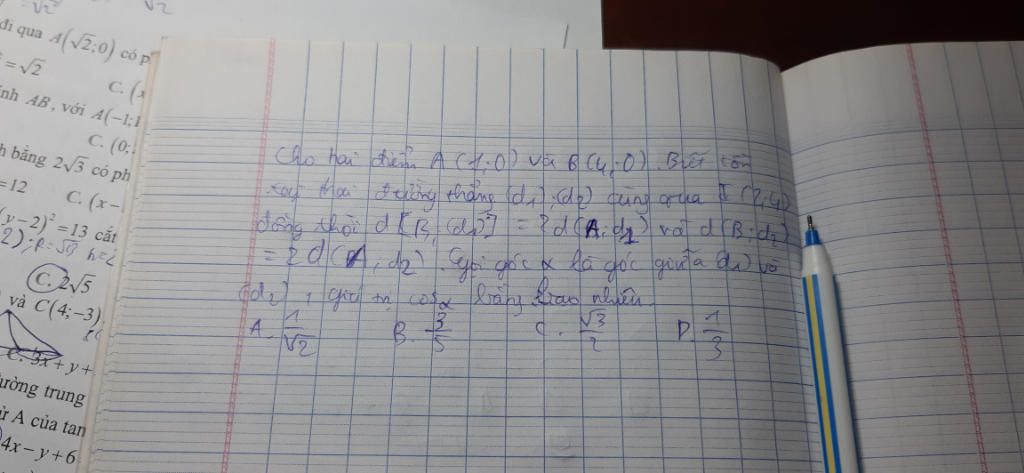 đi qua A(√2;0) có p
= √2
C. (x
ính AB, với A(−1;1
C. (0;
h bằng 2√3 có ph
= 12
C. (x −
(y−2)² = 13 cắt
C. 2√5
và C(4;−3)
C. 3x + y +
đường trung
ừ A của tan
4x − y + 6
Cho hai điểm A(1;0) và B(4;0). Biết tồn
tại hai đường thẳng (d1);(d2) cùng qua I(2;4)
đồng thời d[B,(d1)] = 2d(A;d1) và d(B;d2)
= 2d(A,d2). Gọi góc α là góc giữa (d1) và
(d2), giá trị cosα bằng bao nhiêu
A. 1/√2 B. 3/5 C. √3/2 D. 1/3